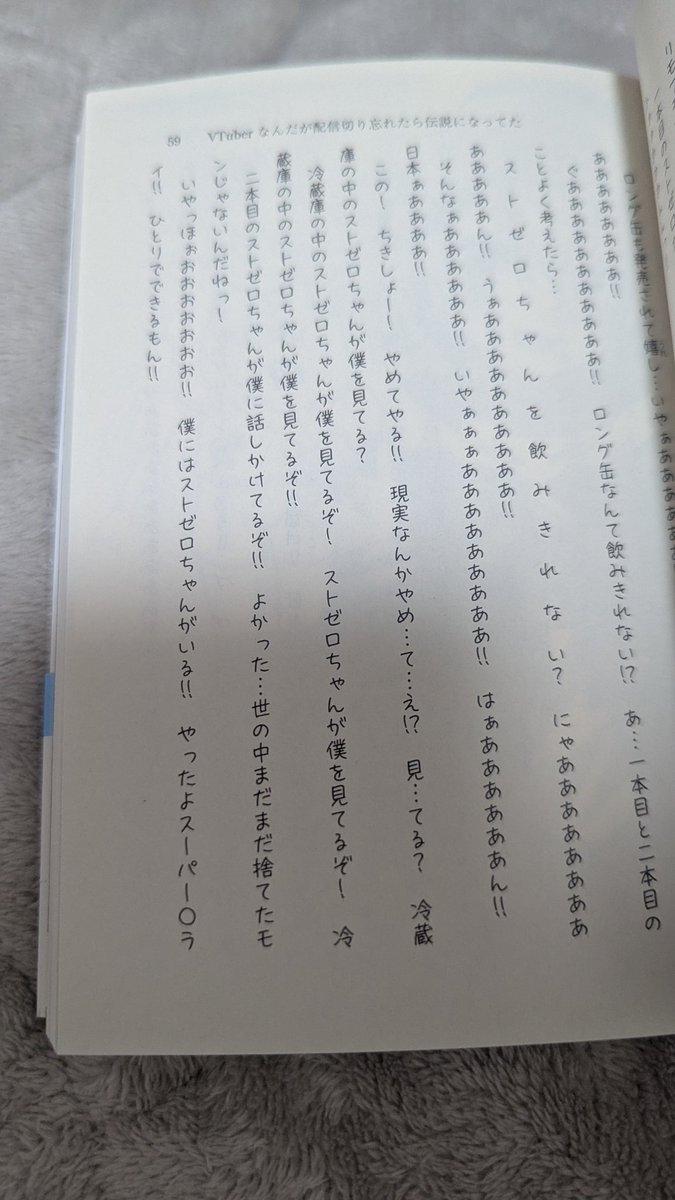 59 VTuberなんだが配信切り忘れたら伝説になってた
ロング缶も発売されて嬉し…いやぁああああ
あああああああ!!
ぐあああああああああああ!! ロング缶なんて飲みきれない!? あ…一本目と二本目の
ことよく考えたら…
ストゼロちゃんを飲みきれない? にゃあああああああああ
あああああん!! うぁああああああああああ!!
そんなぁああああああ!! いやぁぁああああああああああ!! はぁああああああん!!
日本ぁああああ!!
この! ちきしょー! やめてやる!! 現実なんかやめ…て…え!? 見…てる? 冷蔵
庫の中のストゼロちゃんが僕を見てる?
冷蔵庫の中のストゼロちゃんが僕を見てるぞ! ストゼロちゃんが僕を見てるぞ! 冷
蔵庫の中のストゼロちゃんが僕を見てるぞ!!
二本目のストゼロちゃんが僕に話しかけてるぞ!! よかった…世の中まだまだ捨てたモ
ンじゃないんだねっ!
いやっほぉおおおおおおお!! 僕にはストゼロちゃんがいる!! やったよスーパー〇ラ
イ!! ひとりでできるもん!!